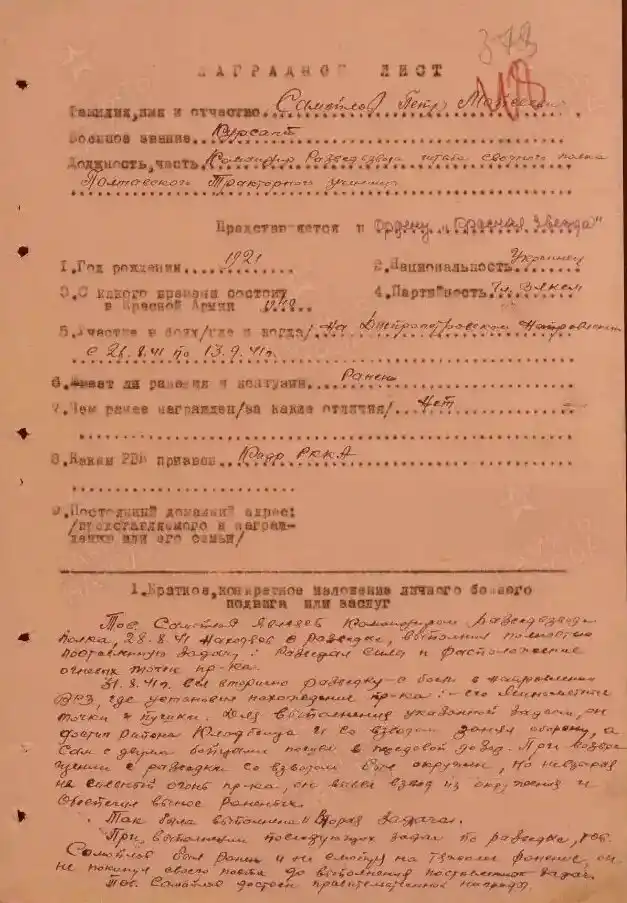 373
НАГРАДНОЙ ЛИСТ
Фамилия, имя и отчество Самойлов Петр
Военное звание Курсант
Должность, часть. Командир Разведвзвода штаба сводного полка
Полтавского Тракторного училища
Представляется к Ордену "Красная Звезда"
1. Год рождения 1921 2. Национальность Украинец
3. С какого времени состоит
в Красной Армии 4. Партийность Чл. ВЛКСМ
5. Участие в боях/где и когда/ На Днепропетровском направлении
с 28.8.41 по 13.9.41г.
6. Имеет ли ранения и контузии Ранен
7. Чем ранее награжден/за какие отличия/ Нет
8. Каким РВК призван Кадр РККА
9. Постоянный домашний адрес:
/представляемого к награж-
дению или его семьи/
1. Краткое, конкретное изложение личного боевого
подвига или заслуг
Тов. Самойлов являясь Командиром разведвзвода
полка, 28.8.41 находясь в разведке, выполнил полностью
поставленную задачу: Разведал силы и расположение
огневых точек пр-ка.
31.8.41г. вел вторично разведку с боем в направлении
где установил нахождение пр-ка: его Минометные
точки и пушки. Для выполнения указанной задачи, он
района Кладбища и со взводом занял оборону, а
Сам с двумя бойцами пошел в дозор. При возвра-
щении с разведки со взводом был окружен, но невзирая
на сильный огонь пр-ка, он вывел взвод из окружения и
обеспечил вынос Раненых.
Так была выполнена Вторая задача.
При выполнении последующих задач по разведке, тов.
Самойлов был Ранен и не смотря на тяжелое ранение, он
не покинул своего поста до выполнения поставленной задачи.
Тов. Самойлов достоин правительственной награды.